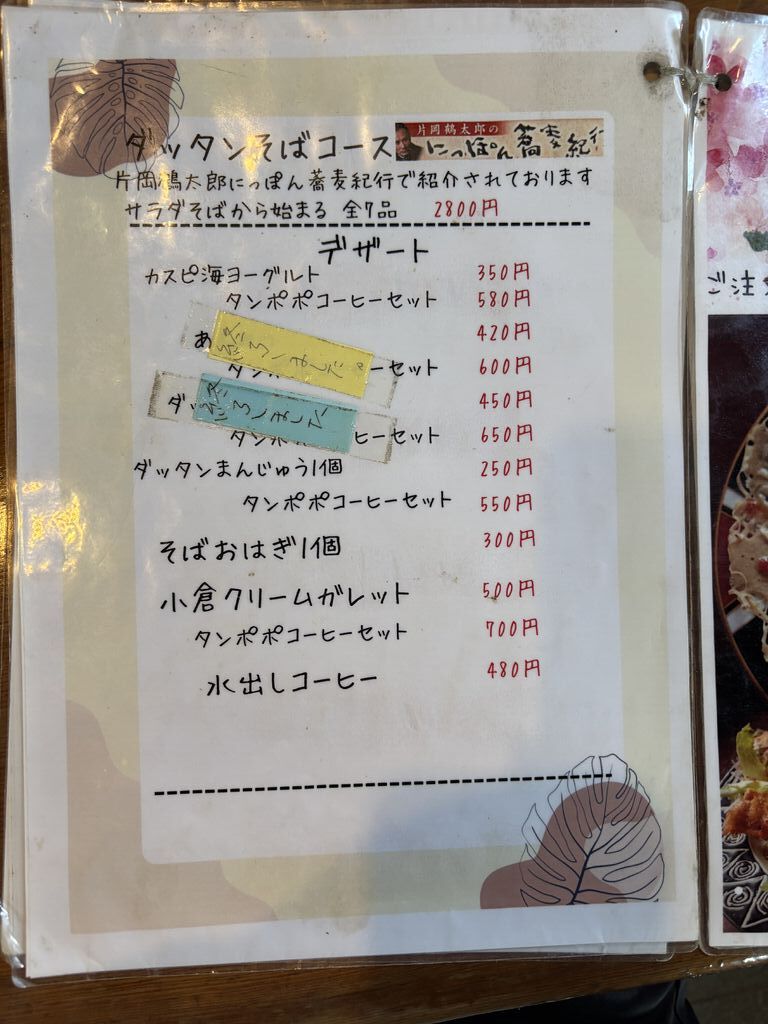 ダッタンそばコース 片岡鶴太郎の にっぽん蕎麦紀行
片岡鶴太郎にっぽん蕎麦紀行で紹介されております
サラダそばから始まる 全7品 2800円
デザート
カスピ海ヨーグルト 350円
タンポポコーヒーセット 580円
あ 420円
タン ーセット 600円
ダッ 450円
タンポ ヒーセット 650円
終了しました
ダッタンまんじゅう1個 250円
タンポポコーヒーセット 550円
そばおはぎ1個 300円
小倉クリームガレット 500円
タンポポコーヒーセット 700円
水出しコーヒー 480円
ご注文